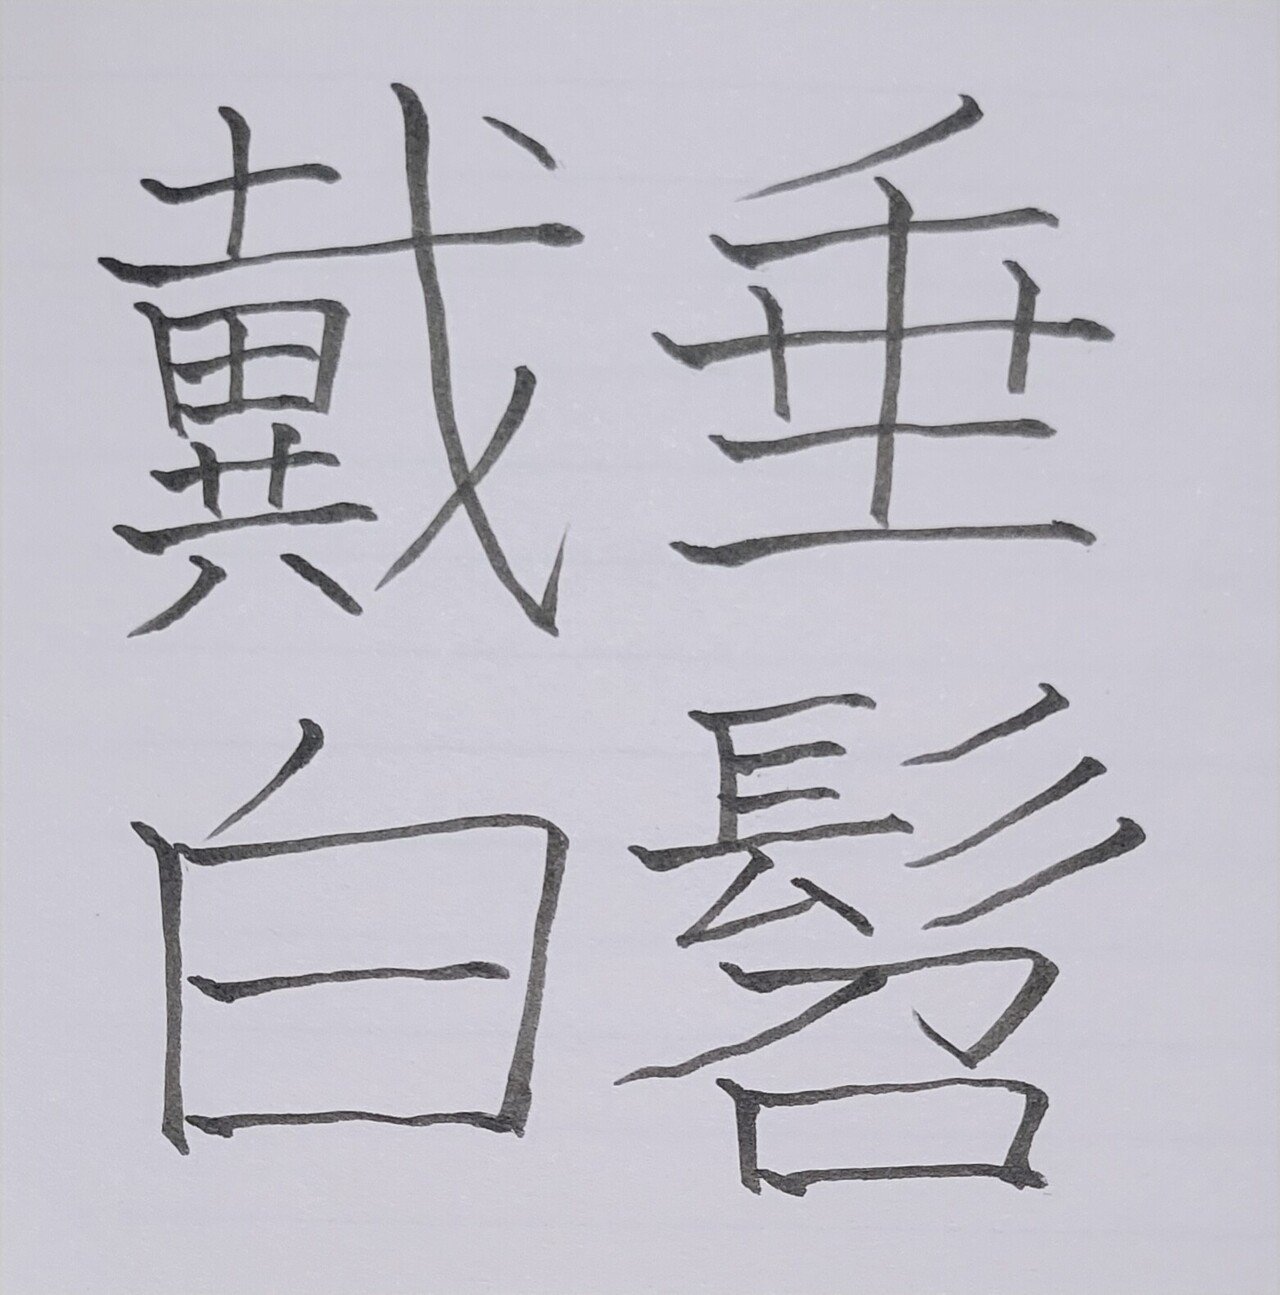 垂髫
戴白